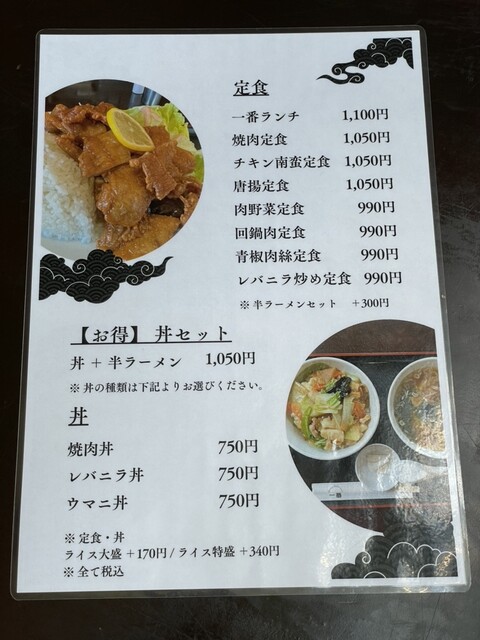 定食
一番ランチ 1,100円
焼肉定食 1,050円
チキン南蛮定食 1,050円
唐揚定食 1,050円
肉野菜定食 990円
回鍋肉定食 990円
青椒肉絲定食 990円
レバニラ炒め定食 990円
※ 半ラーメンセット +300円
【お得】 丼セット
丼 + 半ラーメン 1,050円
※ 丼の種類は下記よりお選びください。
丼
焼肉丼 750円
レバニラ丼 750円
ウマニ丼 750円
※ 定食・丼
ライス大盛 +170円 / ライス特盛 +340円
※ 全て税込